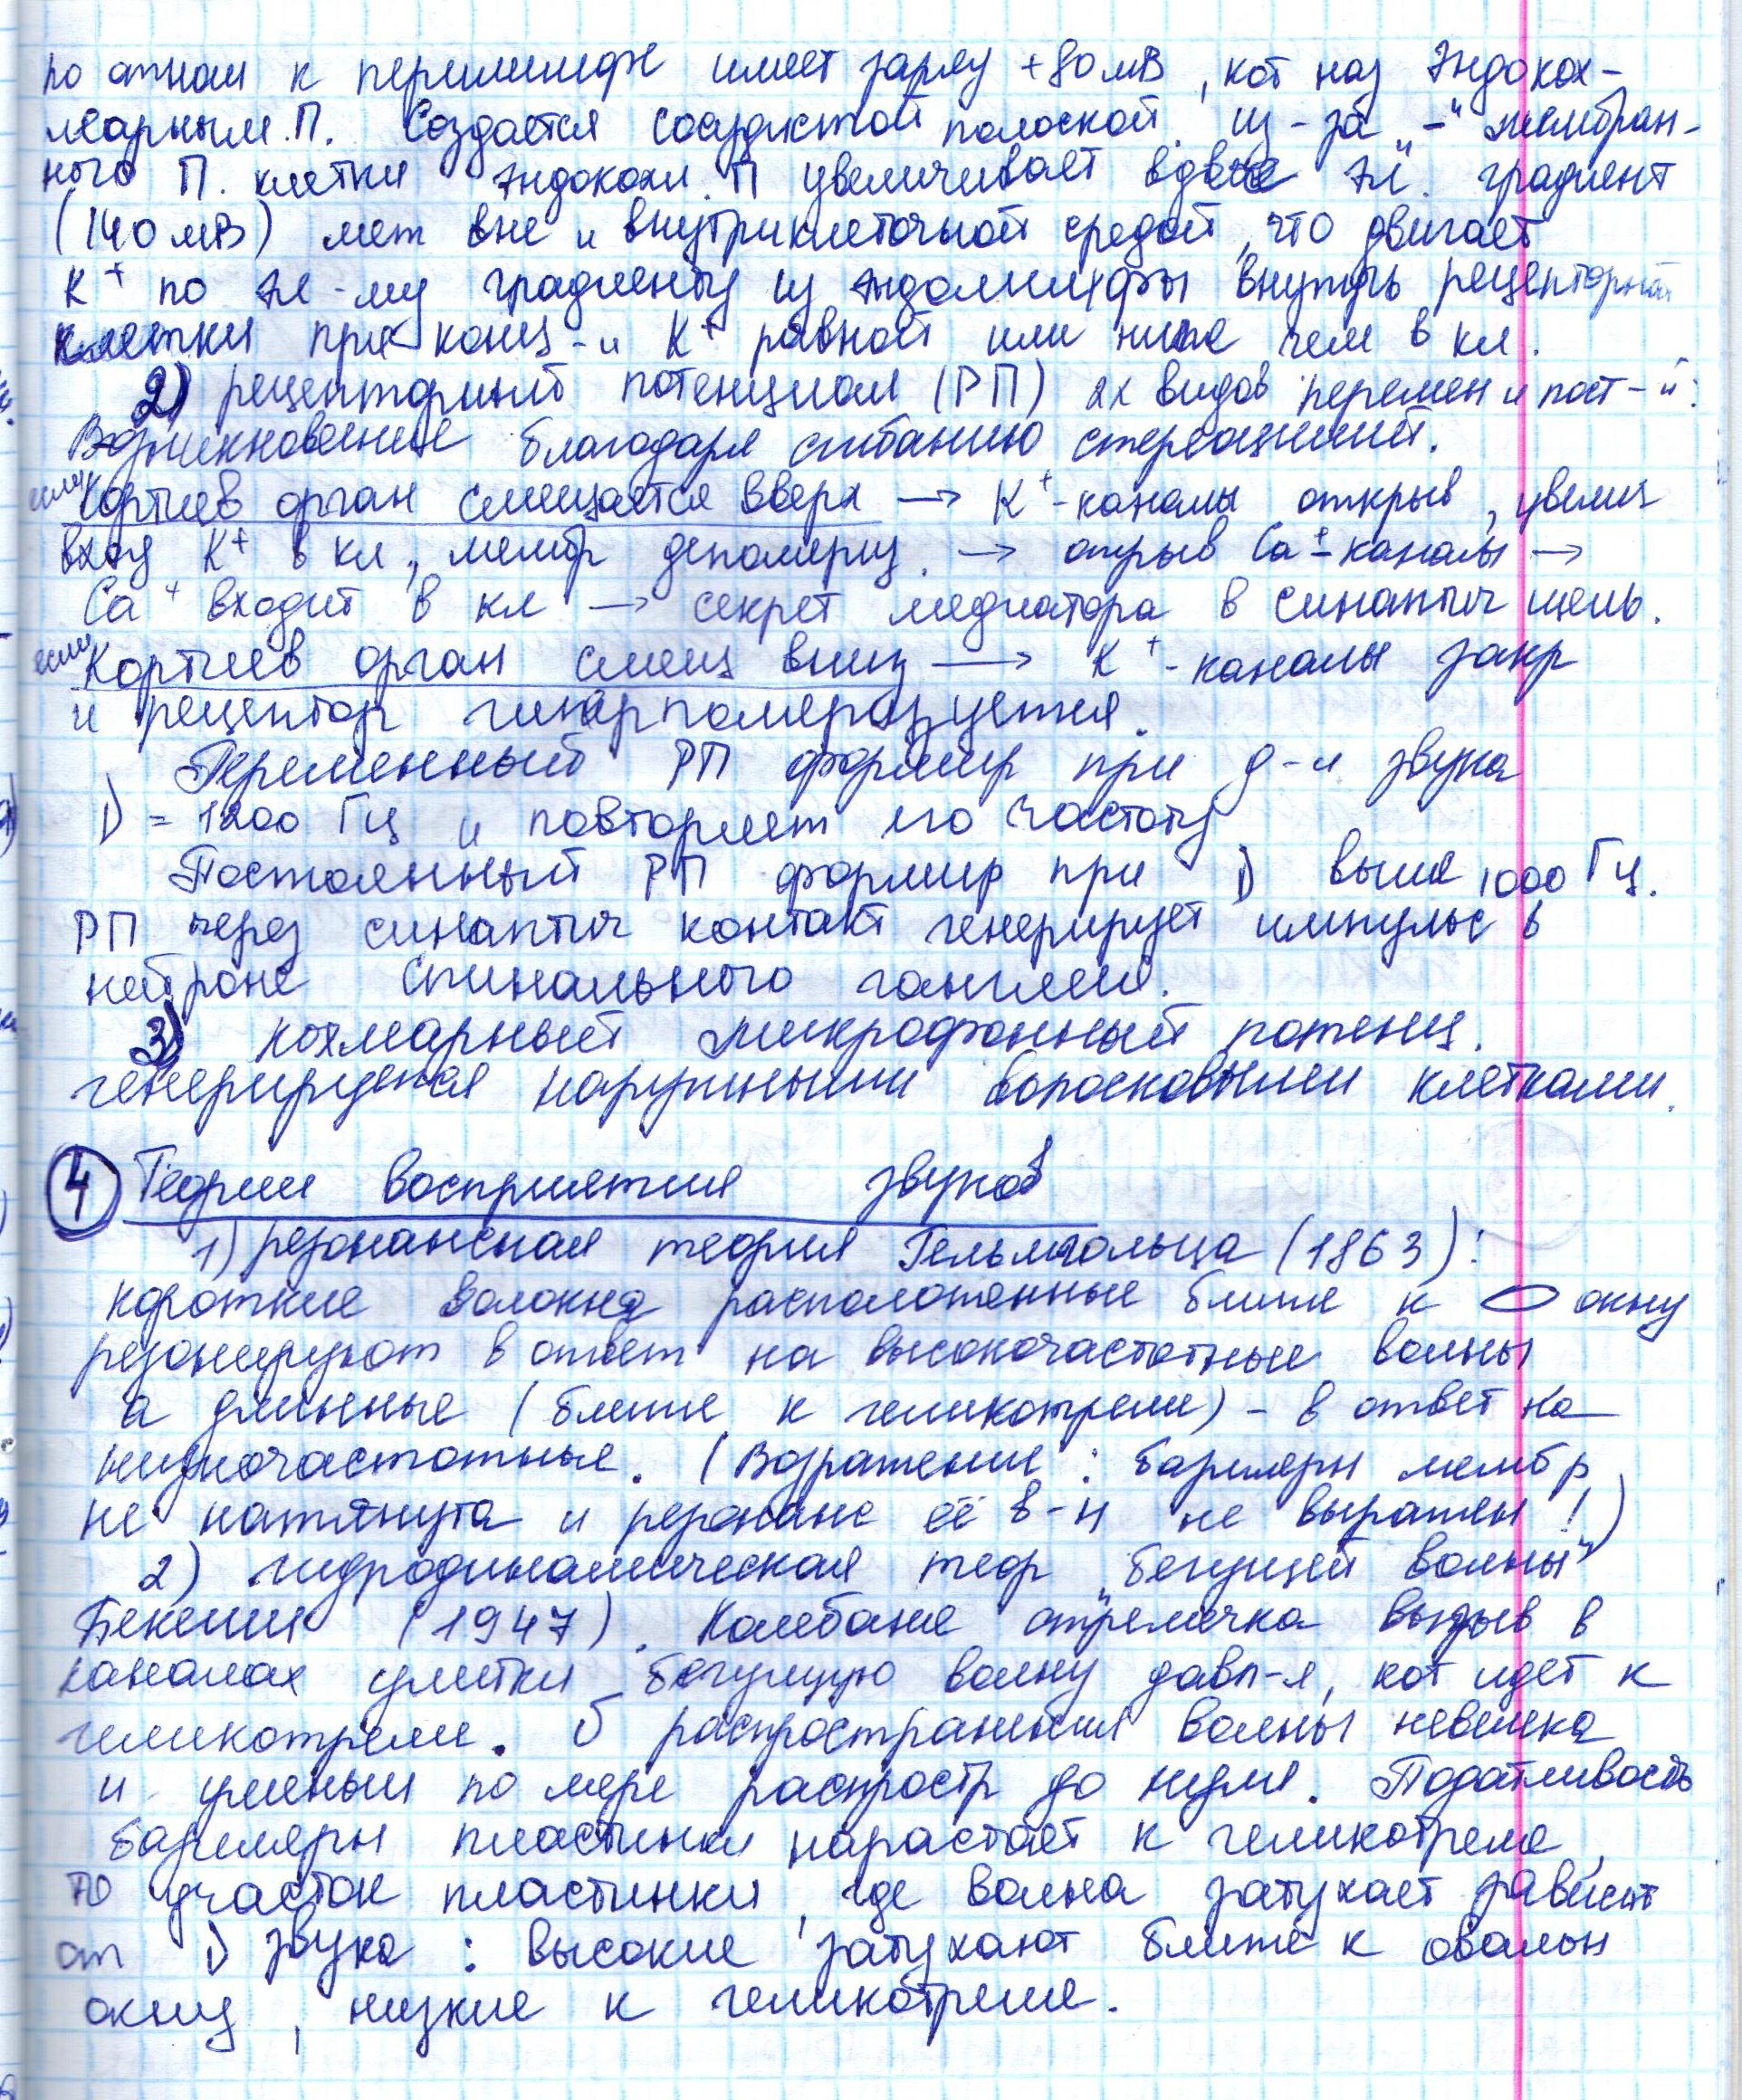 по отнош к перилимфе имеет заряд +80 мВ, кот наз Эндокох-
леарным П. Создается сосудистой полоской. из-за "-" мембран-
ного П. клетки эндокохл. П увеличивает вдвое эл. градиент
(140 мВ) меж вне и внутриклеточной средой, что двигает
K⁺ по эл-му градиенту из эндолимфы внутрь рецепторной
клетки при конц-и K⁺ равной или ниже чем в кл.
2) рецепторный потенциал (РП) 2х видов перемен и пост-й:
Возникновение благодаря сгибанию стереоцилий.
если Кортиев орган смещается вверх → K⁺-каналы открыв, увелич
вход K⁺ в кл, мембр деполяриз. → открыв Ca⁺-каналы →
Ca⁺ входит в кл → секрет медиатора в синаптич щель.
если Кортиев орган смещ вниз → K⁺-каналы закр
и рецептор гиперполяризуется.
Переменный РП формир при д-и звука
ν = 1200 Гц и повторяет его частоту
Постоянный РП формир при ν выше 1000 Гц.
РП через синаптич контакт генерирует импульс в
нейроне спинального ганглия.
3) кохлеарный микрофонный потенц.
генерируется наружными волосковыми клетками.
4 Теории восприятия звуков
1) резонансная теория Гельмгольца (1863):
короткие волокна расположенные ближе к окну
резонируют в ответ на высокочастотные волны
а длинные (ближе к геликотреме) - в ответ на
низкочастотные. (Возражение: базилярн мембр
не натянута и резонанс её в-н не выражен!)
2) гидродинамическая теор "бегущей волны"
Бекеши (1947). Колебание стремечка вызыв в
каналах улитки бегущую волну давл-я, кот идет к
геликотреме. распространения волны невелика
и уменьш по мере распростр до нуля. Податливость
базилярн пластинки нарастает к геликотреме,
то участок пластинки, где волна затухает зависит
от ν звука: высокие затухают ближе к овальн
окну, низкие к геликотреме.